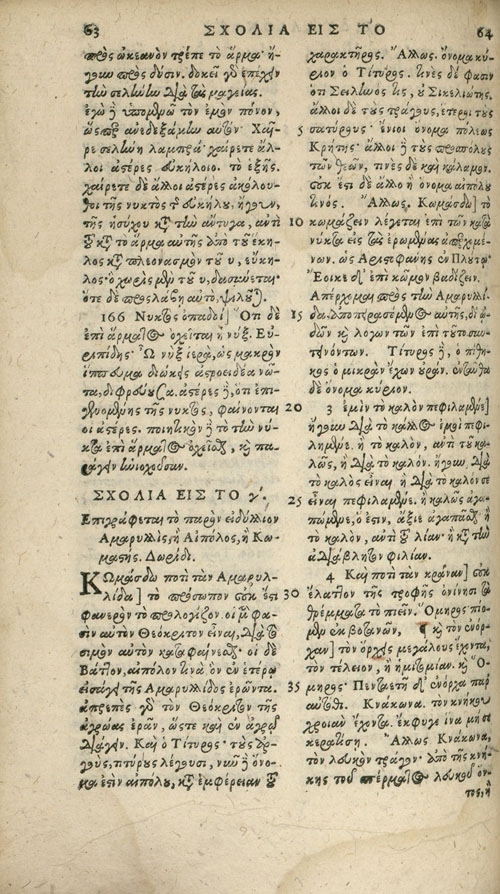 63 ΣΧΟΛΙΑ ΕΙΣ ΤΟ 64
πρὸς ὠκεανὸν τρέπε τὸ ἅρμα· ἤ-
γουν πρὸς δύσιν. δοκεῖ γὰρ ἐπέχειν
τὴν σελήνην διὰ τῆς μαγείας.
ἐγὼ δὲ ὑπομενῶ τὸν ἐμὸν πόνον,
ὥσπερ ἀνεδεξάμην αὐτόν· Χαῖ-
ρε σελήνη λαμπρά· χαίρετε ἄλ-
λοι ἀστέρες εὐκήλοιο. τὸ ἑξῆς.
χαίρετε δὲ ἄλλοι ἀστέρες ἀκόλου-
θοι τῆς νυκτὸς τοῦ εὐκήλου, ἤγουν,
τῆς ἡσύχου κατὰ τὴν ἄντυγα, ἀντὶ
τοῦ κατὰ τὸ ἅρμα αὐτῆς. ἀπὸ τοῦ ἕκη-
λος κατὰ πλεονασμὸν τοῦ υ, εὔκη-
λος· ὁ χωρὶς μὲν τοῦ υ, δασύνεται·
ὅτε δὲ προσλάβῃ αὐτό, ψιλοῦται.
166 Νυκτὸς ὀπαδοί] Ὅτι δὲ
ἐπὶ ἅρματος ὀχεῖται ἡ νύξ. Εὐ-
ριπίδης· Ὦ νὺξ ἱερά, ὡς μακρὸν
ἵππευμα διώκεις ἀστροειδέα νῶ-
τα, διφρεύουσα. ἀστέρες δὲ, ὅτι ἐπι-
γενομένης τῆς νυκτὸς, φαίνονται
οἱ ἀστέρες. ποιητικὸν δὲ τὸ τὴν νύ-
κτα ἐπὶ ἅρματος ὀχεῖσθαι, καὶ πα-
ράγειν ἡνιοχοῦσαν.
ΣΧΟΛΙΑ ΕΙΣ ΤΟ γʹ.
Ἐπιγράφεται τὸ παρὸν εἰδύλλιον
Ἀμαρυλλὶς, ἢ Αἰπόλος, ἢ Κω-
μαστής. Δωρίδι.
Κωμάσδω ποτὶ τὰν Ἀμαρυλ-
λίδα] τὸ πρόσωπον οὐκ ἔστι
φανερὸν τὸ προλογίζον. οἱ μὲν φα-
σὶν αὐτὸν Θεόκριτον εἶναι, διὰ τὸ
σιμὸν αὐτὸν καταφαίνεσθαι. οἱ δὲ
Βάττον, αἰπόλον τινὰ ὃν ἐν ἑτέρῳ
εἰσάγει τῆς Ἀμαρυλλίδος ἐρῶντα.
ἀπρεπὲς γὰρ τὸν Θεόκριτον τῆς
ἀγροίας ἐρᾶν, ὥστε καὶ ἐν ἀγρῷ
διάγειν. Καὶ ὁ Τίτυρος· τοὺς τρά-
γους, τιτύρους λέγουσι, νῦν δὲ ὄνο-
μά ἐστιν αἰπόλου, κατ' ἐμφέρειαν τοῦ
χαρακτῆρος. Ἄλλως. ὄνομα κύ-
ριον ὁ Τίτυρος. τινὲς δέ φασιν,
ὅτι Σειληνός τις, ὁ Σικελιώτης.
ἄλλοι δὲ τοὺς τράγους, ἕτεροι τοὺς
5 σατύρους· ἔνιοι ὄνομα πόλεως
Κρήτης· ἄλλοι δὲ τοὺς προπόλους
τῶν θεῶν, τινὲς δὲ καὶ κάλαμον.
οὐκ ἔστι δὲ ἄλλο ἢ ὄνομα αἰπόλου
τινός. Ἄλλως. Κωμάσδω] τὸ
10 κωμάζειν λέγεται ἐπὶ τῶν κατὰ
νύκτα εἰς τὰς ἐρωμένας ἀπερχομέ-
νων. ὡς Ἀριστοφάνης ἐν Πλούτῳ·
Ἔοικε δ' ἐπὶ κῶμον βαδίζειν.
Ἀπέρχομαι πρὸς τὴν Ἀμαρυλλί-
15 δα, ἀποπειρασόμενος αὐτῆς, δι' ᾠ-
δῶν καὶ λόγων τῶν ἐπὶ τοῦτο συν-
τεινόντων. Τίτυρος δὲ, ὁ πίθη-
κος ὁ μικρὰν ἔχων οὐράν. ἐνταῦθα
δὲ ὄνομα κύριον.
20 3 ἐμὶν τὸ καλὸν πεφιλαμένε]
ἤγουν διὰ τὸ κάλλος ἐμοὶ πεφι-
λημένε. ἢ τὸ καλὸν, ἀντὶ τοῦ κα-
λῶς, ἢ διὰ τὸ καλόν. ἤγουν, διὰ
τὸ καλὸς εἶναι ἢ διὰ τὸ καλόν σε
25 εἶναι πεφιλαμένε. ἢ καλῶς ἀγα-
πώμενε, ὅ ἐστιν, ἄξιε ἀγαπᾶσθαι· ἢ
τὸ καλὸν, ἀντὶ τοῦ λίαν· ἢ κατὰ τὴν
ἀδιάβλητον φιλίαν.
4 Καὶ ποτὶ τὰν κράναν] οὐκ
30 ἔλαττον τῆς τροφῆς ὀνίνησι τὰ
θρέμματα τὸ πιεῖν. Ὅμηρος πιο-
μεν ἐκ βοτανῶν, ¶ καὶ τὸν ἐνόρ-
χαν] τὸν ὄρχεις μεγάλους ἔχοντα,
τὸν τέλειον, ἢ ἡμίτομιαν. καὶ Ὅ-
35 μηρος· Πεντακτῆ δ' ἔνορχα παρ'
αὐτόθι. Κνάκωνα. τὸν κνηκὸν
χροιὰν ἔχοντα. ἔκφυγε ἵνα μή σε
κερατίσῃ. Ἄλλως Κνάκωνα,
τὸν λευκὸν τράγον· ἀπὸ τῆς κνή-
κης τοῦ σπέρματος λευκοῦ ὄν-
τος, ἢ